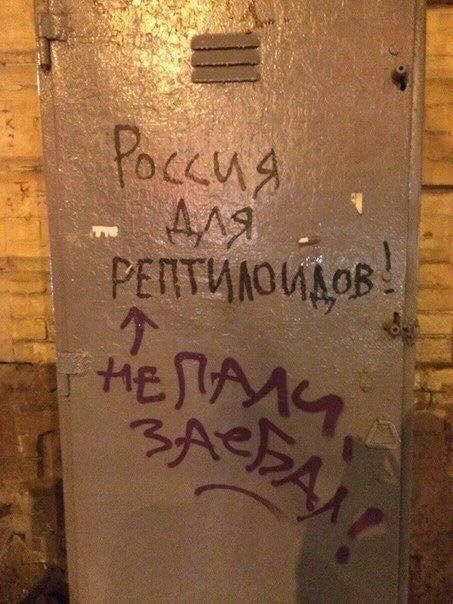 Россия
для
РЕПТИЛОИДОВ!
↑
НЕ ПАЛИ,
ЗАеБАЛ!